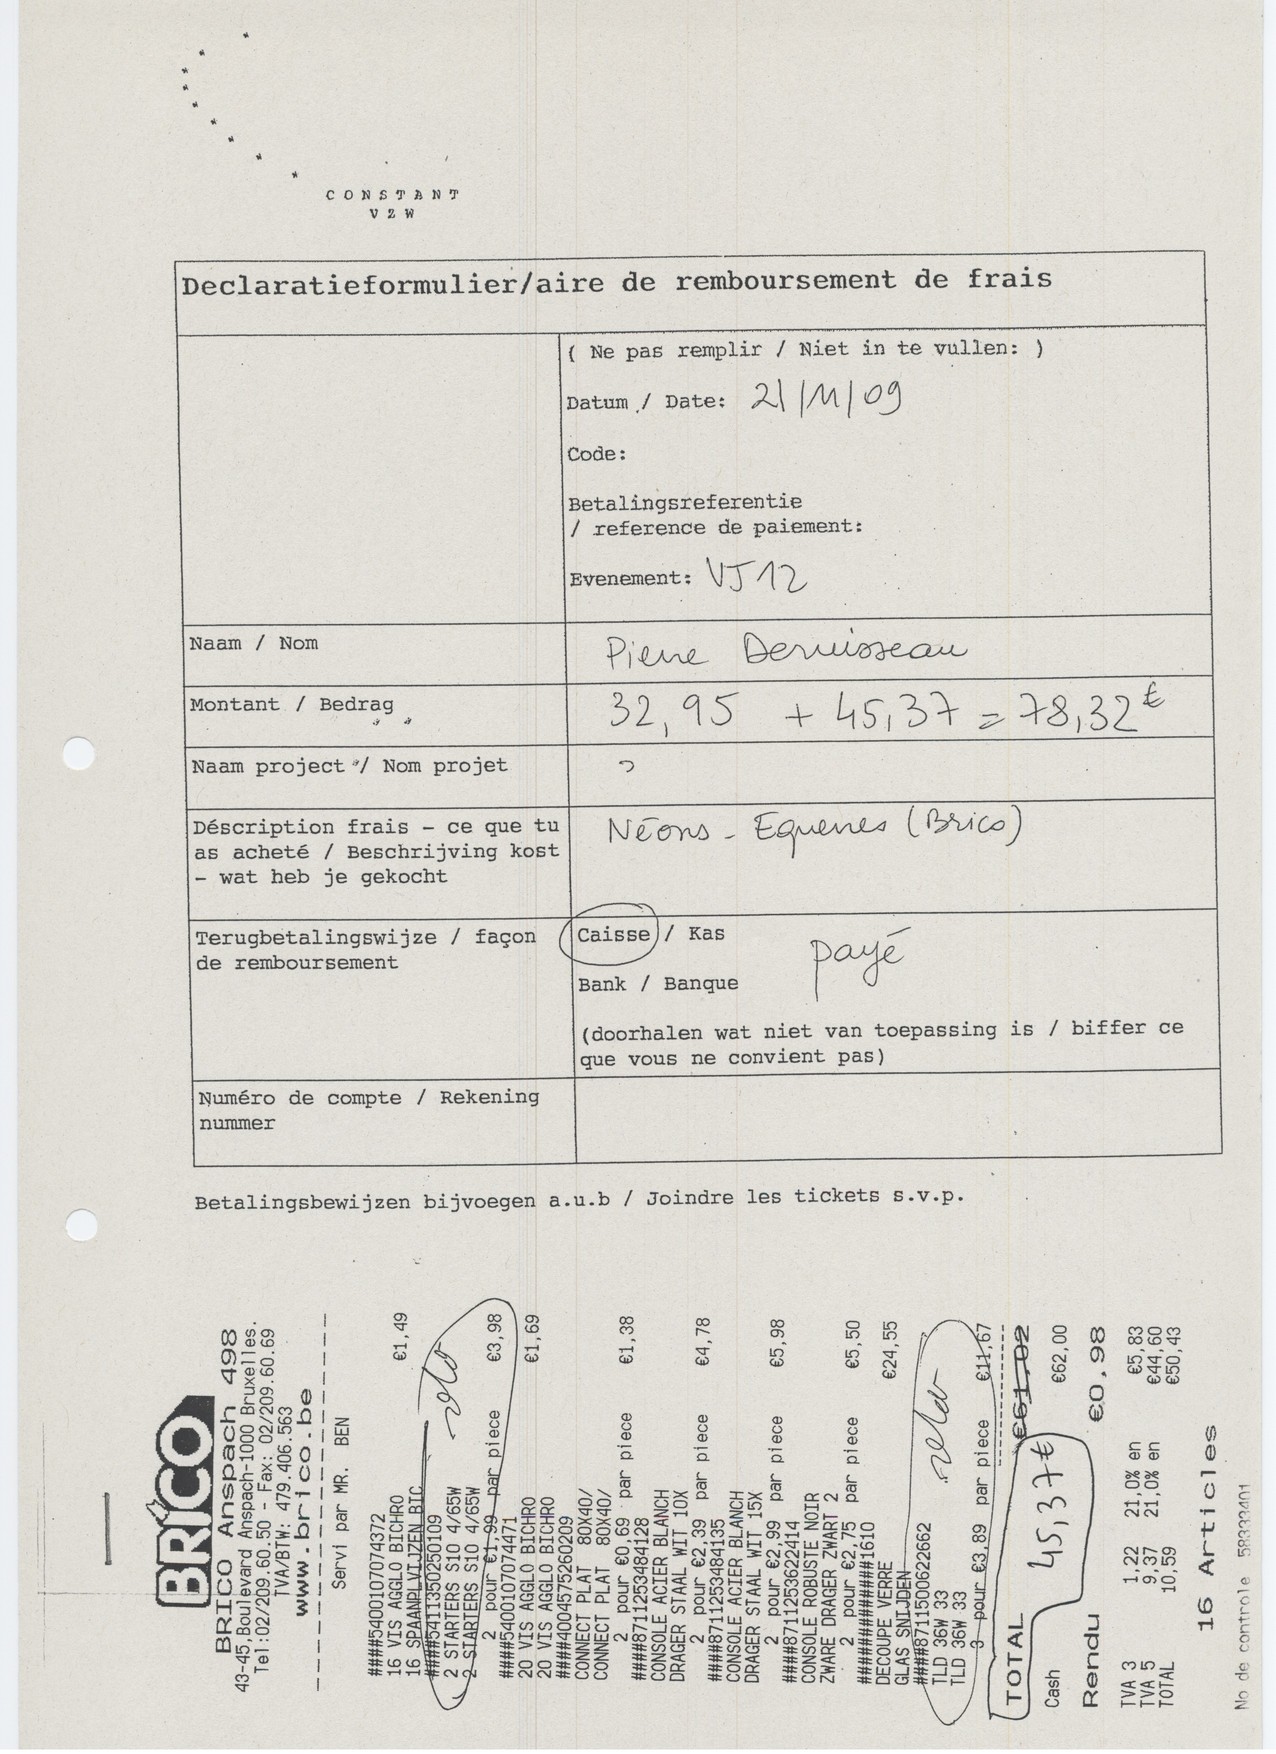 CONSTANT
VZW
Declaratieformulier/aire de remboursement de frais
( Ne pas remplir / Niet in te vullen: )
Datum / Date: 21/11/09
Code:
Betalingsreferentie
/ reference de paiement:
Evenement: VJ12
Naam / Nom
Pierre Deruisseau
Montant / Bedrag
32,95 + 45,37 = 78,32€
Naam project / Nom projet
?
Déscription frais - ce que tu
as acheté / Beschrijving kost
- wat heb je gekocht
Néons - Equerres (Brico)
Terugbetalingswijze / façon
de remboursement
Caisse / Kas
payé
Bank / Banque
(doorhalen wat niet van toepassing is / biffer ce
que vous ne convient pas)
Numéro de compte / Rekening
nummer
Betalingsbewijzen bijvoegen a.u.b / Joindre les tickets s.v.p.
BRICO
BRICO Anspach 498
43-45,Boulevard Anspach-1000 Bruxelles.
Tel:02/209.60.50 - Fax: 02/209.60.69
TVA/BTW: 479.406.563
www.brico.be
Servi par MR. BEN
####5400107074372
16 VIS AGGLO BICHRO €1,49
16 SPAANPLVIJZEN BIC
####5411350250109
2 STARTERS S10 4/65W
2 STARTERS S10 4/65W
2 pour €1,99 par piece €3,98
####5400107074471
20 VIS AGGLO BICHRO €1,69
20 VIS AGGLO BICHRO
####4004575260209
CONNECT PLAT 80X40/
CONNECT PLAT 80X40/
2 pour €0,69 par piece €1,38
####8711253484128
CONSOLE ACIER BLANCH
DRAGER STAAL WIT 10X
2 pour €2,39 par piece €4,78
####8711253484135
CONSOLE ACIER BLANCH
DRAGER STAAL WIT 15X
2 pour €2,99 par piece €5,98
####8711253622414
CONSOLE ROBUSTE NOIR
ZWARE DRAGER ZWART 2
2 pour €2,75 par piece €5,50
#############1610
DECOUPE VERRE €24,55
GLAS SNIJDEN
####8711500622662
TLD 36W 33
TLD 36W 33
3 pour €3,89 par piece €11,67
TOTAL €61,02
45,37€
Cash €62,00
Rendu €0,98
TVA 3 1,22 21,0% en €5,83
TVA 5 9,37 21,0% en €44,60
TOTAL 10,59 €50,43
16 Articles
No de controle 58333401